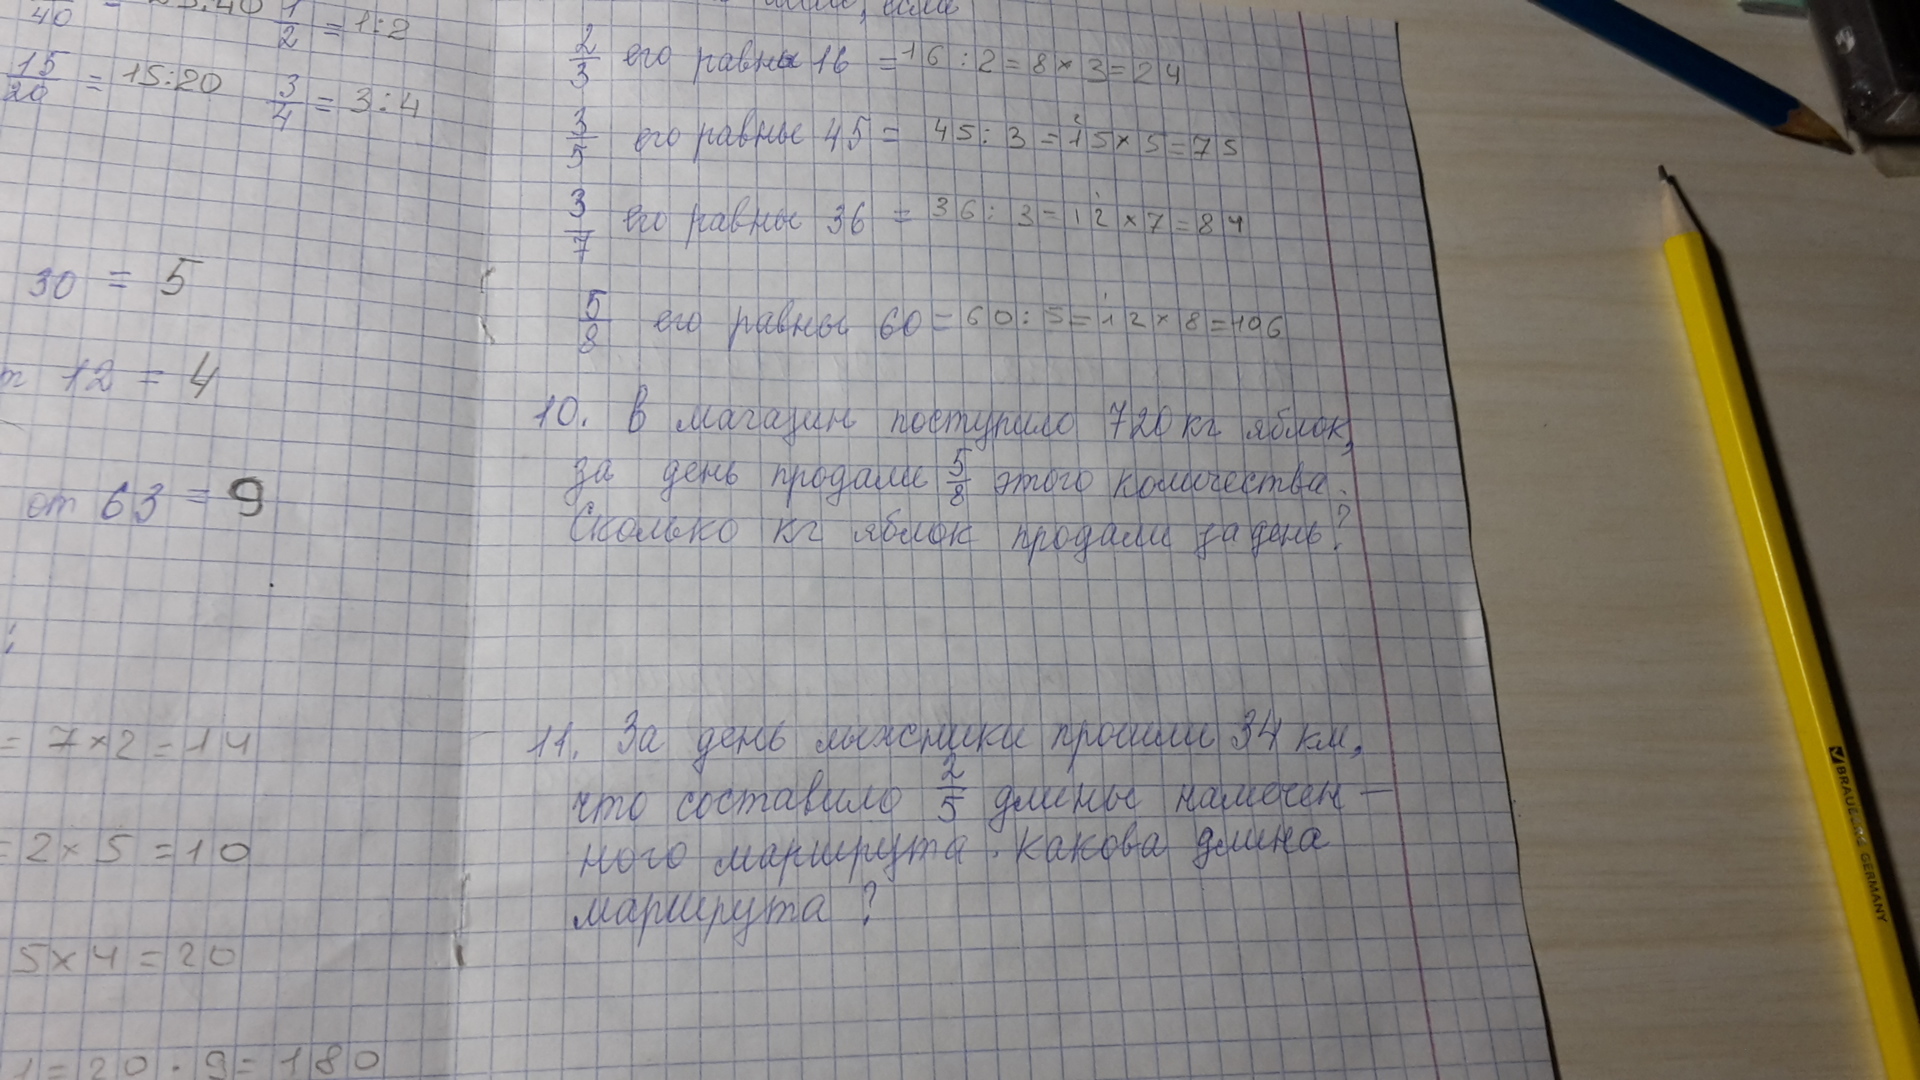 40 = 25:40 1/2 = 1:2
15/20 = 15:20 3/4 = 3:4
30 = 5
12 = 4
от 63 = 9
= 7×2=14
= 2×5=10
5×4=20
1=20·9=180
если
2/3 его равны 16 = 16:2=8×3=24
3/5 его равны 45 = 45:3=15×5=75
3/7 его равны 36 = 36:3=12×7=84
5/8 его равны 60 = 60:5=12×8=106
10. В магазин поступило 720 кг яблок,
за день продали 5/8 этого количества.
Сколько кг яблок продали за день?
11. За день лыжники прошли 34 км,
что составило 2/5 длины намечен-
ного маршрута. какова длина
маршрута?
BRAUBERG GERMANY